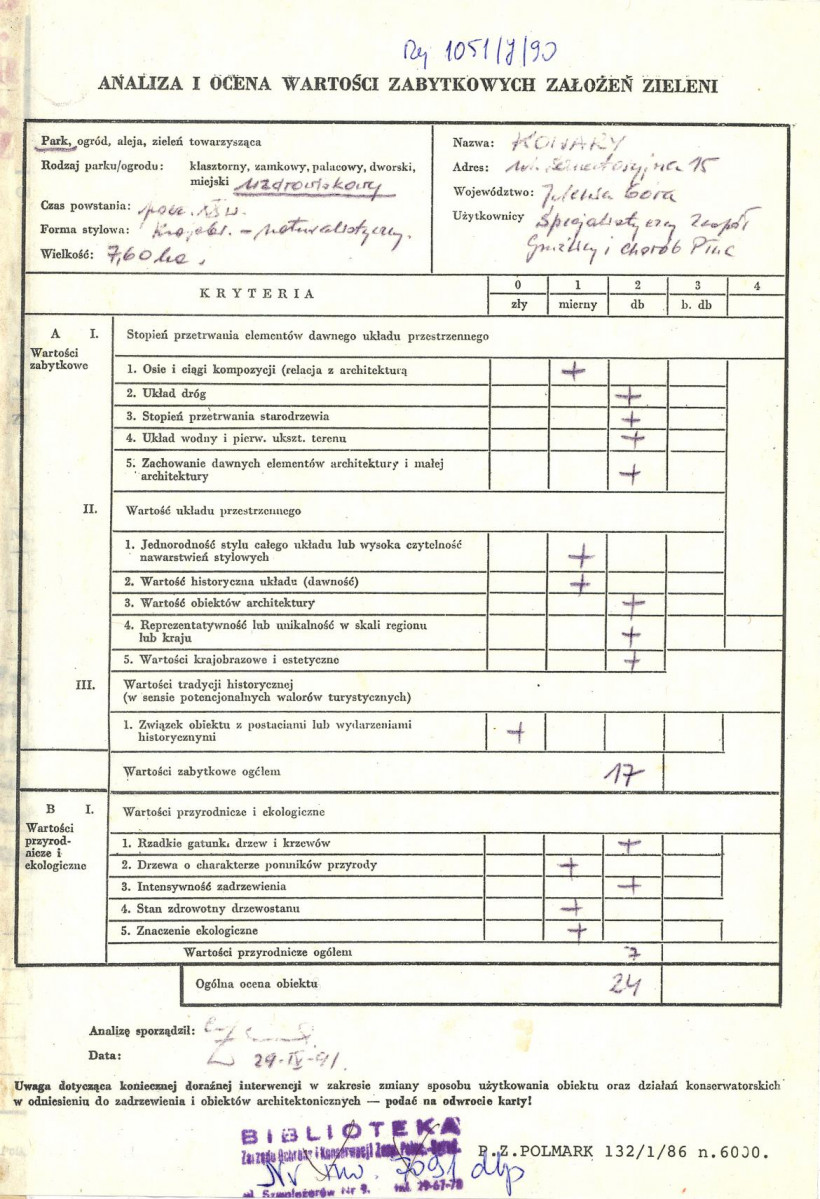 Rej 1051/J/90
ANALIZA I OCENA WARTOŚCI ZABYTKOWYCH ZAŁOŻEŃ ZIELENI
Park, ogród, aleja, zieleń towarzysząca
Rodzaj parku/ogrodu: klasztorny, zamkowy, pałacowy, dworski,
miejski uzdrowiskowy
Czas powstania: pocz. XX w.
Forma stylowa: Krajobr. - naturalistyczny.
Wielkość: 7,60 ha.
Nazwa: KOWARY
Adres: ul. Sanatoryjna 15
Województwo: Jelenia Góra
Użytkownicy Specjalistyczny Zespół
Gruźlicy i chorób Płuc
KRYTERIA
0 1 2 3 4
zły mierny db b. db
A I. Stopień przetrwania elementów dawnego układu przestrzennego
Wartości
zabytkowe
1. Osie i ciągi kompozycji (relacja z architekturą +
2. Układ dróg +
3. Stopień przetrwania starodrzewia +
4. Układ wodny i pierw. ukszt. terenu +
5. Zachowanie dawnych elementów architektury i małej
architektury +
II. Wartość układu przestrzennego
1. Jednorodność stylu całego układu lub wysoka czytelność
nawarstwień stylowych +
2. Wartość historyczna układu (dawność) +
3. Wartość obiektów architektury +
4. Reprezentatywność lub unikalność w skali regionu
lub kraju +
5. Wartości krajobrazowe i estetyczne +
III. Wartości tradycji historycznej
(w sensie potencjonalnych walorów turystycznych)
1. Związek obiektu z postaciami lub wydarzeniami
historycznymi +
Wartości zabytkowe ogółem 17
B I. Wartości przyrodnicze i ekologiczne
Wartości
przyrod-
nicze i
ekologiczne
1. Rzadkie gatunki drzew i krzewów +
2. Drzewa o charakterze pomników przyrody +
3. Intensywność zadrzewienia +
4. Stan zdrowotny drzewostanu +
5. Znaczenie ekologiczne +
Wartości przyrodnicze ogółem 7
Ogólna ocena obiektu 24
Analizę sporządził:
Data: 29-IV-91.
Uwaga dotycząca koniecznej doraźnej interwencji w zakresie zmiany sposobu użytkowania obiektu oraz działań konserwatorskich
w odniesieniu do zadrzewienia i obiektów architektonicznych — podać na odwrocie karty!
BIBLIOTEKA
Zarządu Ochrony i Konserwacji
R.Z.POLMARK 132/1/86 n.6000.
Nr inw. 7091
ul. Szwoleżerów Nr 9. tel. 29-67-78